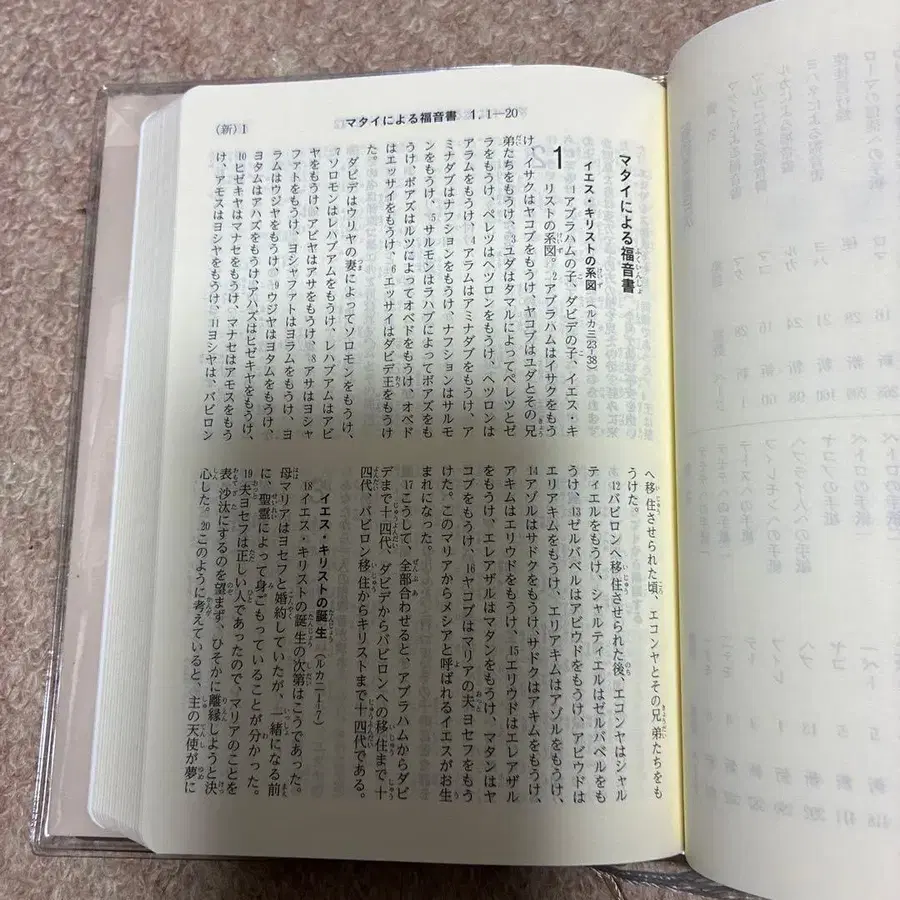 (新)1
マタイによる福音書 1, 1―20
マタイによる福音書
イエス・キリストの系図(ルカ三23-38)
1
1アブラハムの子、ダビデの子、イエス・キ
リストの系図。2アブラハムはイサクをもう
け、イサクはヤコブをもうけ、ヤコブはユダとその兄
弟たちをもうけ、3ユダはタマルによってペレツとゼ
ラをもうけ、ペレツはヘツロンをもうけ、ヘツロンは
アラムをもうけ、4アラムはアミナダブをもうけ、ア
ミナダブはナフションをもうけ、ナフションはサルモ
ンをもうけ、5サルモンはラハブによってボアズをも
うけ、ボアズはルツによってオベドをもうけ、オベド
はエッサイをもうけ、6エッサイはダビデ王をもうけ
た。
ダビデはウリヤの妻によってソロモンをもうけ、
7ソロモンはレハブアムをもうけ、レハブアムはアビ
ヤをもうけ、アビヤはアサをもうけ、8アサはヨシャ
ファトをもうけ、ヨシャファトはヨラムをもうけ、ヨ
ラムはウジヤをもうけ、9ウジヤはヨタムをもうけ、
ヨタムはアハズをもうけ、アハズはヒゼキヤをもうけ、
10ヒゼキヤはマナセをもうけ、マナセはアモスをもう
け、アモスはヨシヤをもうけ、11ヨシヤは、バビロン
へ移住させられた頃、エコンヤとその兄弟たちをも
うけた。
12バビロンへ移住させられた後、エコンヤはシャル
ティエルをもうけ、シャルティエルはゼルバベルをも
うけ、13ゼルバベルはアビウドをもうけ、アビウドは
エリアキムをもうけ、エリアキムはアゾルをもうけ、
14アゾルはサドクをもうけ、サドクはアキムをもうけ、
アキムはエリウドをもうけ、15エリウドはエレアザル
をもうけ、エレアザルはマタンをもうけ、マタンはヤ
コブをもうけ、16ヤコブはマリアの夫ヨセフをもう
けた。このマリアからメシアと呼ばれるイエスがお生
まれになった。
17こうして、全部合わせると、アブラハムからダビ
デまで十四代、ダビデからバビロンへの移住まで十
四代、バビロン移住からキリストまで十四代である。
イエス・キリストの誕生(ルカ二1-7)
18イエス・キリストの誕生の次第はこうであった。
母マリアはヨセフと婚約していたが、一緒になる前
に、聖霊によって身ごもっていることが分かった。
19夫ヨセフは正しい人であったので、マリアのことを
表沙汰にするのを望まず、ひそかに離縁しようと決
心した。20このように考えていると、主の天使が夢に